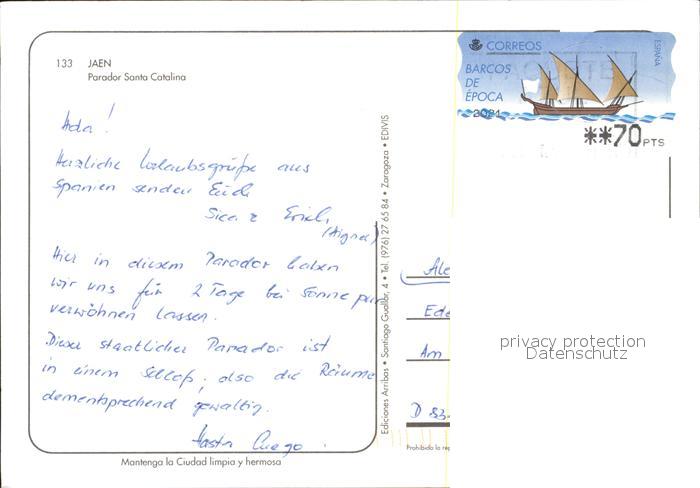 133 JAEN
Parador Santa Catalina
CORREOS
ESPAÑA
BARCOS
DE
ÉPOCA
2021
**70 PTS
Hola!
Herzliche Urlaubsgrüße aus
Spanien senden Euch
Erich
(Aigner)
Hier in diesem Parador haben
wir uns für 2 Tage bei Sonne pur
verwöhnen lassen.
Dieser staatlicher Parador ist
in einem Schloß, also die Räume
dementsprechend gewaltig.
Hasta Luego.
Ediciones Arribas • Santiago Guallar, 4 • Tel. (976) 27 65 84 • Zaragoza • EDIVIS
Ede
Am
D 83-
Prohibida la rep
Mantenga la Ciudad limpia y hermosa
privacy protection
Datenschutz